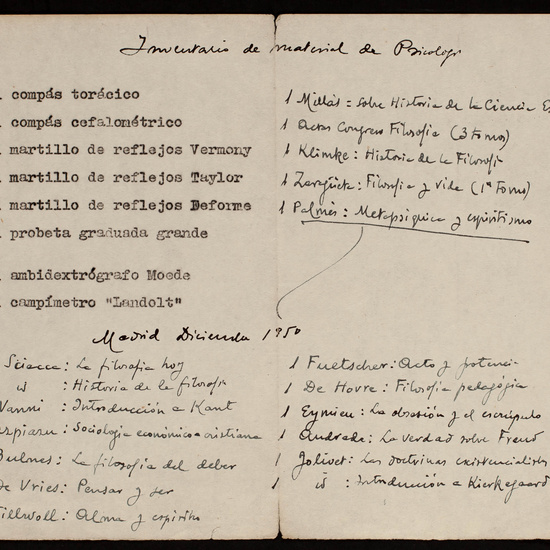 Inventario de material de Psicolog
compás torácico
compás cefalométrico
martillo de reflejos Vermony
martillo de reflejos Taylor
martillo de reflejos Deforme
probeta graduada grande
ambidextrógrafo Moede
campímetro "Landolt"
1 Millás: sobre Historia de la Ciencia Es
1 Actas Congreso Filosofía (3 tomos)
1 Klimke: Historia de la Filosofí
1 Zaragüeta: Filosofía y vida (1er Tomo)
1 Palmés: Metapsíquica y espiritismo
Madrid Diciembre 1950
Sciacca: La filosofía hoy
id : Historia de la filosofí
Vanni : Introducción a Kant
zpiazu: Sociología económico-cristiana
Bulnes: La filosofía del deber
De Vries: Pensar y ser
Willwoll: Alma y espíritu
1 Fuetscher: Acto y potenci
1 De Hovre: Filosofía pedagógica
1 Eymieu: La obsesión y el escrúpulo
1 Andrade: La verdad sobre Freud
1 Jolivet: Las doctrinas existencialistas
1 id : Introducción a Kierkegaard